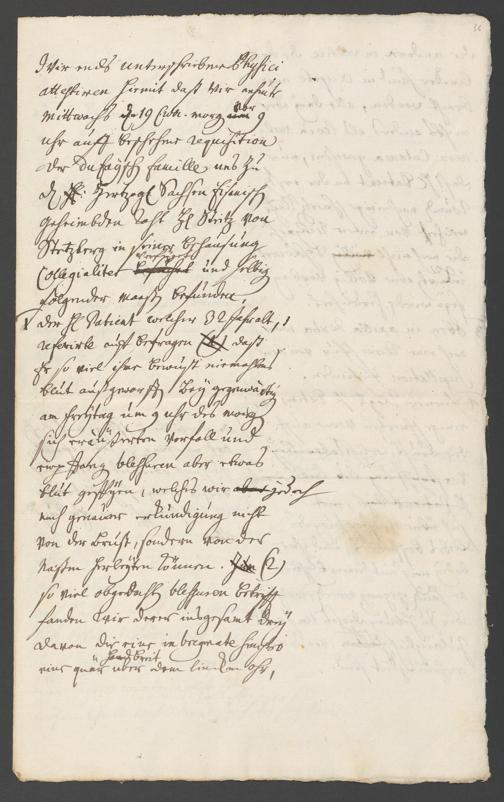 36
Wir ends unterschriebene Physici
attestiren hiermit daß wir anheute
Mittwochs d 19 huj. morg vor 9
uhr auff beschehene requisition
der Du Fayisch famille, uns zu
Hertzogl Sachsen Eisenisch
Geheimbden Raht H Steitz von
Stetzberg in seiner behausung
Collegialiter verfügt und selbig
folgender maaßen befunden,
1 der H Patient welcher 32 Jahr alt,
referirte auff befragen daß
Er so viel ihm bewust niemahls
blut außgeworffen bey gegenwärtig
am freytag um 9 uhr des morg
sich eräußerten verfall und
empfang blessuren aber etwas
blut gespyen, welches wir aber jedoch
nach genauer erkündigung nicht
von der brust, sondern von der
Naßen herleyten können. (2)
so viel obgedacht blessuren betrifft
fanden wir deren insgesamt drey
davon die eine in bregmate sinistro
eine quär handbreit über dem lincken ohr,